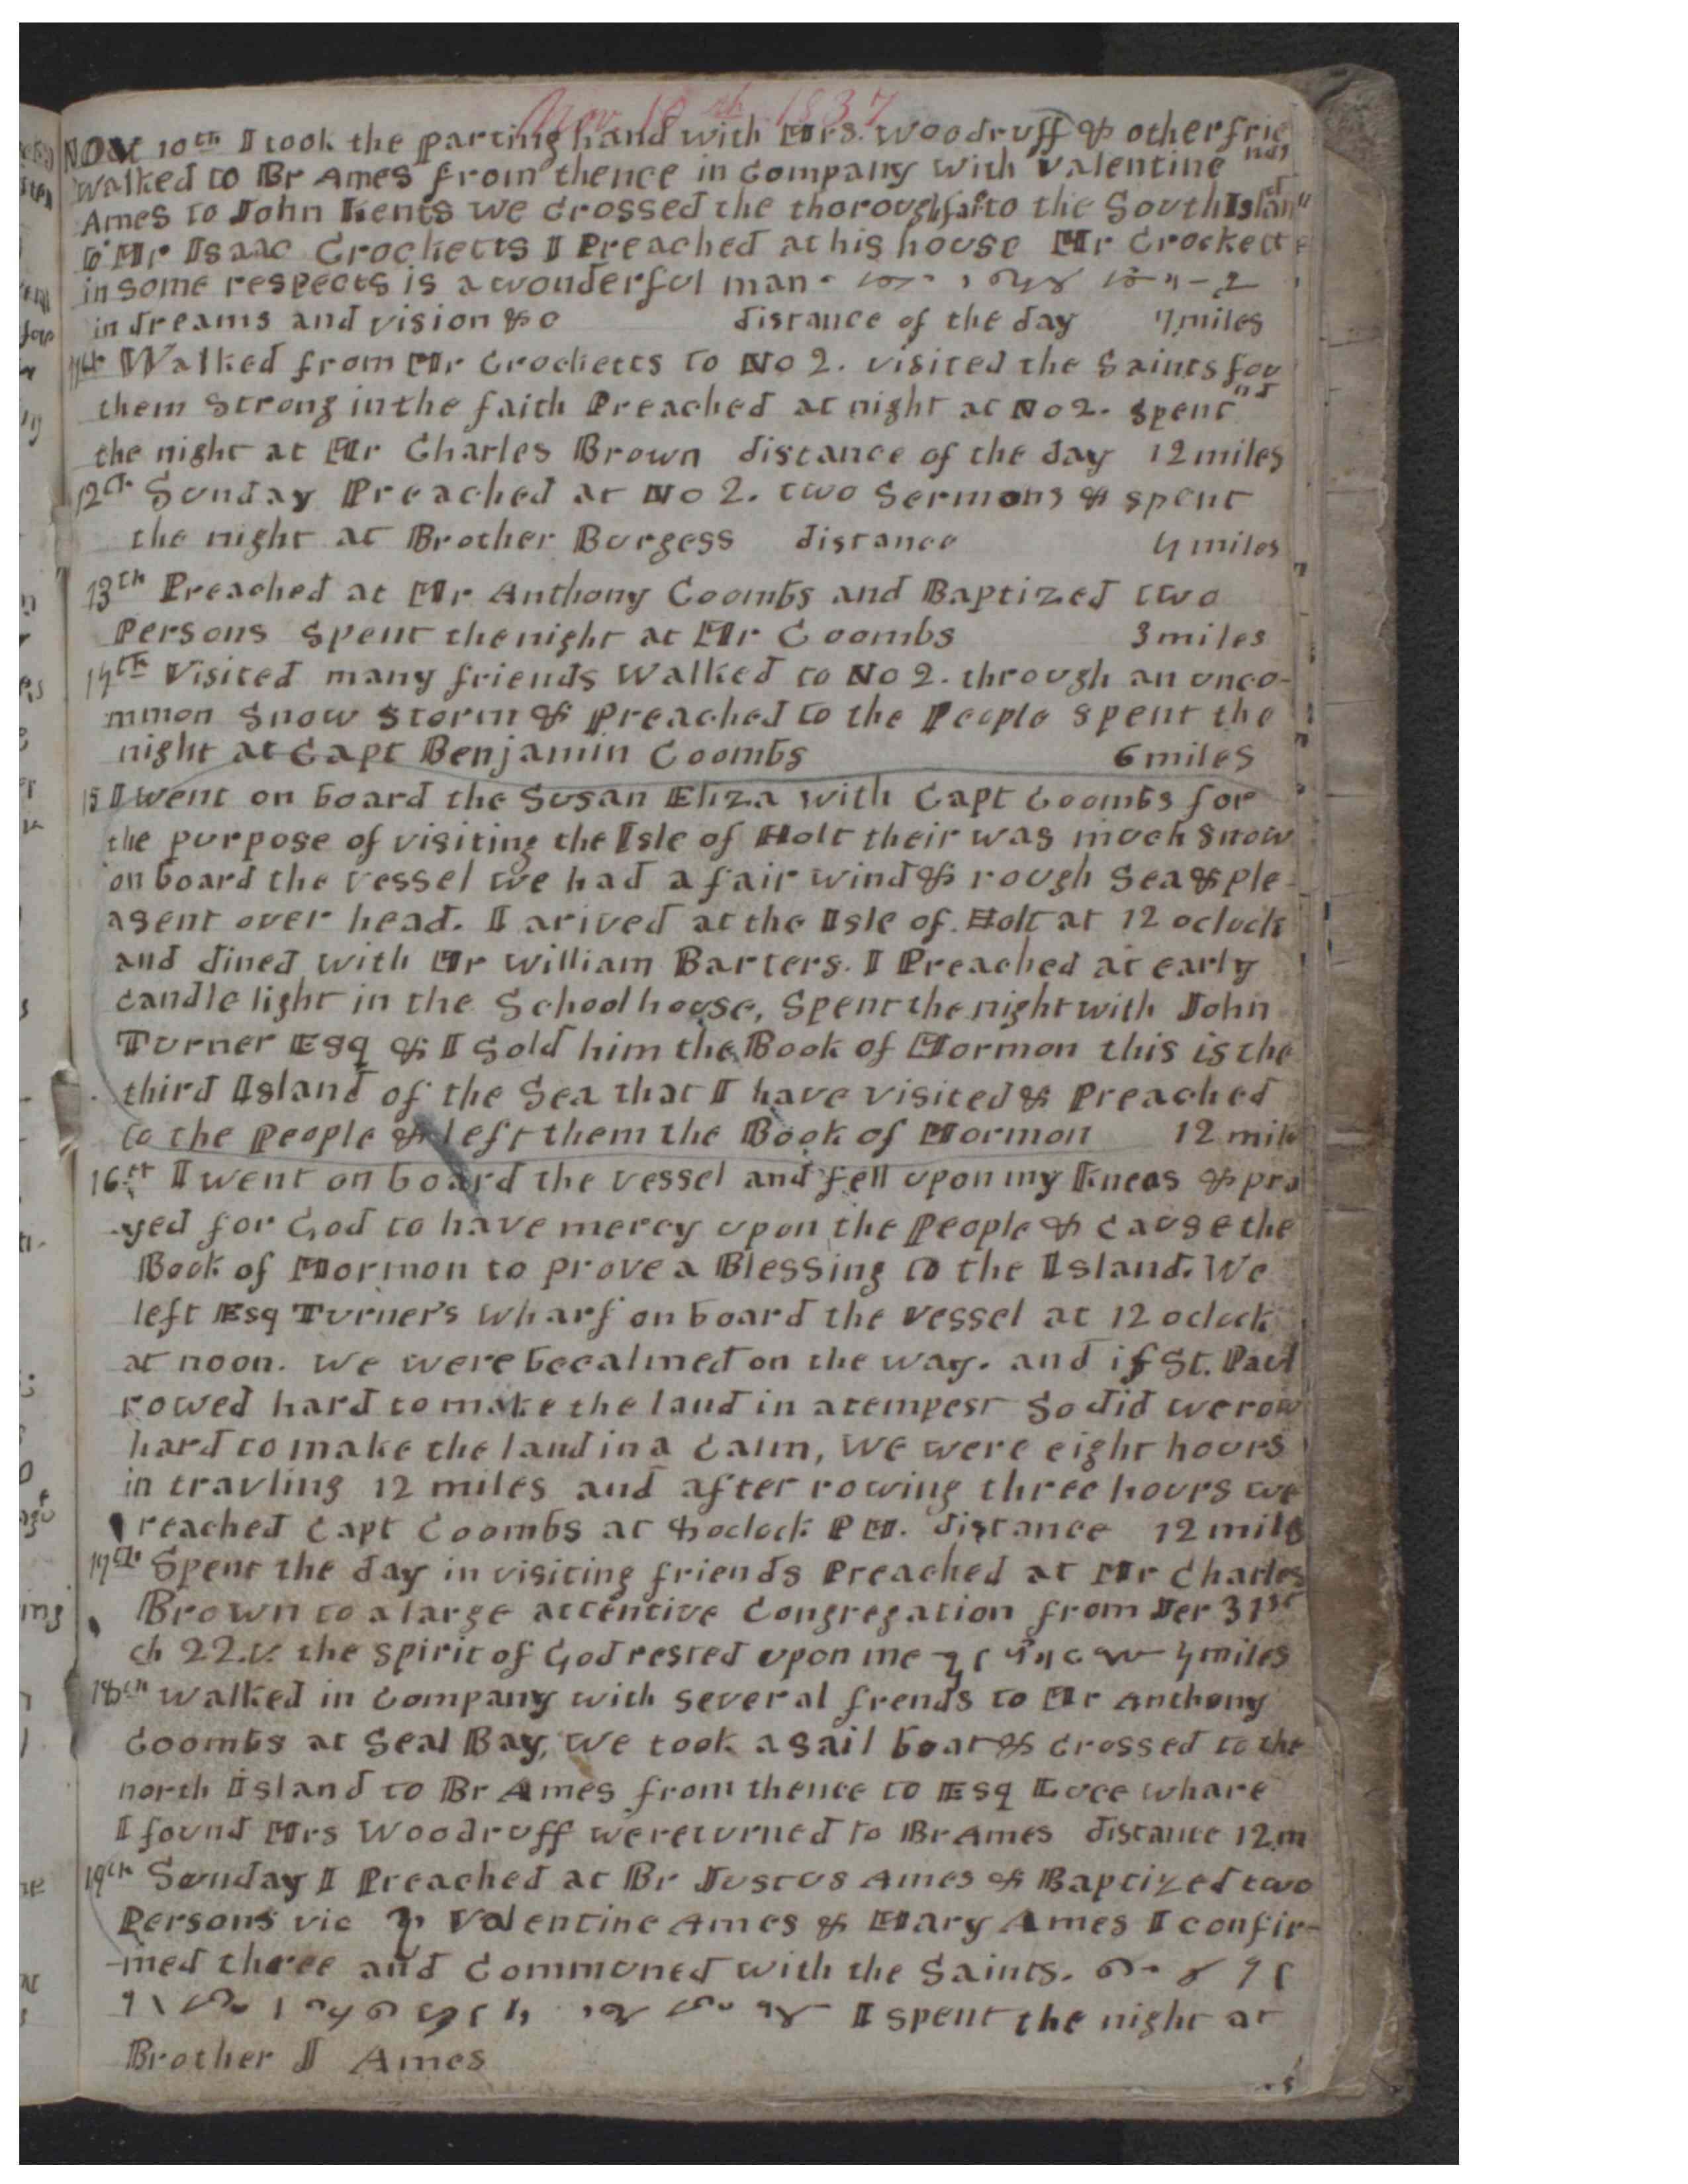 Nov 10th 1837
Nov 10th I took the parting hand with Mrs. Woodruff & other frie
nds
walked to Br Ames from thence in Company with Valentine
Ames to John Kents we crossed the thoroughfair to the South Island
to Mr Isaac Crocketts I Preached at his house Mr Crockett
in some respects is a wonderful man
in dreams and vision &c distance of the day 7 miles
11th Walked from Mr Crocketts to No 2. visited the Saints fou
nd
them Strong in the faith Preached at night at No 2. Spent
the night at Mr Charles Brown distance of the day 12 miles
12th Sunday Preached at No 2. two Sermons & spent
the night at Brother Burgess distance 4 miles
13th Preached at Mr Anthony Coombs and Baptized two
Persons Spent the night at Mr Coombs 3 miles
14th Visited many friends Walked to No 2. through an unco-
mmon Snow Storm & Preached to the People spent the
night at Capt Benjamin Coombs 6 miles
15 I went on board the Susan Eliza with Capt Coombs for
the purpose of visiting the Isle of Holt their was much snow
on board the vessel we had a fair wind & rough Sea & ple-
asent over head. I arived at the Isle of Holt at 12 oclock
and dined with Mr William Barters. I Preached at early
candle light in the School house, Spent the night with John
Turner Esq & I Sold him the Book of Mormon this is the
third Island of the Sea that I have visited & Preached
to the People & left them the Book of Mormon 12 mile
16th I went on board the vessel and fell upon my knees & pra
yed for God to have mercy upon the People & cause the
Book of Mormon to prove a Blessing to the Island. We
left Esq Turner's Wharf on board the vessel at 12 oclock
at noon. We were becalmed on the way. and if St. Paul
rowed hard to make the land in a tempest So did we row
hard to make the land in a calm, We were eight hours
in travling 12 miles and after rowing three hours we
reached Capt Coombs at 8 oclock PM. distance 12 mils
17th Spent the day in visiting friends Preached at Mr Charles
Brown to a large attentive Congregation from Jer 31st
ch 22.v. the spirit of God rested upon me 4 miles
18th walked in Company with several frends to Mr Anthony
Coombs at Seal Bay, We took a sail boat & crossed to the
north Island to Br Ames from thence to Esq Luce whare
I found Mrs Woodruff we returned to Br Ames distance 12.m
19th Sunday I Preached at Br Justus Ames & Baptized two
Persons vic Valentine Ames & Mary Ames I confir-
-med three and Communed with the Saints.
I spent the night at
Brother J Ames